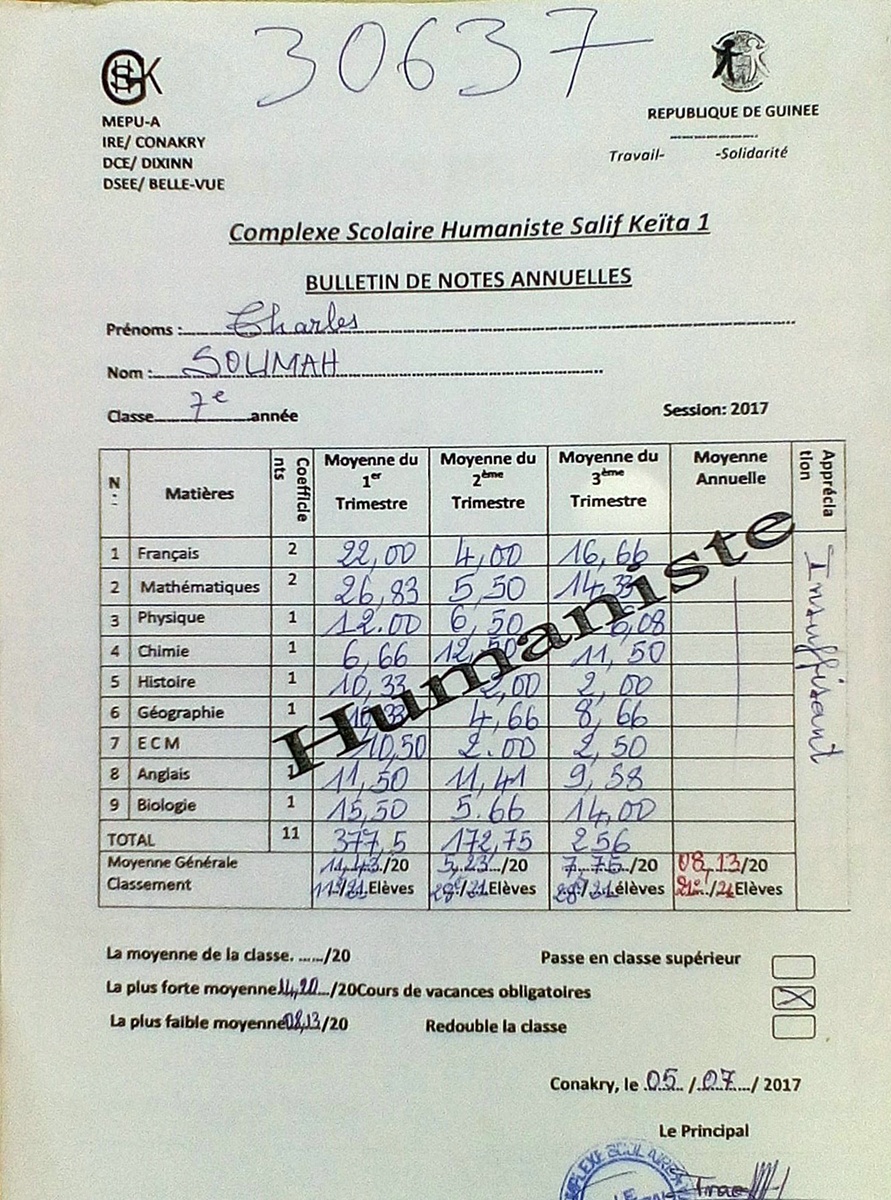 30637
GHSK
MEPU-A
IRE/ CONAKRY
DCE/ DIXINN
DSEE/ BELLE-VUE
REPUBLIQUE DE GUINEE
Travail- -Solidarité
Complexe Scolaire Humaniste Salif Keïta 1
BULLETIN DE NOTES ANNUELLES
Prénoms : Charles
Nom : SOUMAH
Classe 7e année
Session: 2017
N : Matières Coefficie nts Moyenne du 1er Trimestre Moyenne du 2ème Trimestre Moyenne du 3ème Trimestre Moyenne Annuelle Apprécia tion
1 Français 2 22,00 4,00 16,66
2 Mathématiques 2 26,83 5,50 14,33
3 Physique 1 12.00 6,50 6,08
4 Chimie 1 6,66 12,50 11,50
5 Histoire 1 10,33 2,00 2,00
6 Géographie 1 4,66 8,66
7 E C M 10,50 2.00 2,50
8 Anglais 1 11,50 11,41 9,58
9 Biologie 1 15,50 5.66 14,00
Insuffisant
Humaniste
TOTAL 11 377,5 172,75 256
Moyenne Générale 11,43/20 5,23/20 7,75/20 08,13/20
Classement Elèves Elèves élèves Elèves
La moyenne de la classe. ....../20
Passe en classe supérieur
La plus forte moyenne 14,20 /20 Cours de vacances obligatoires
La plus faible moyenne 08,13/20 Redouble la classe
Conakry, le 05 / 07 / 2017
Le Principal